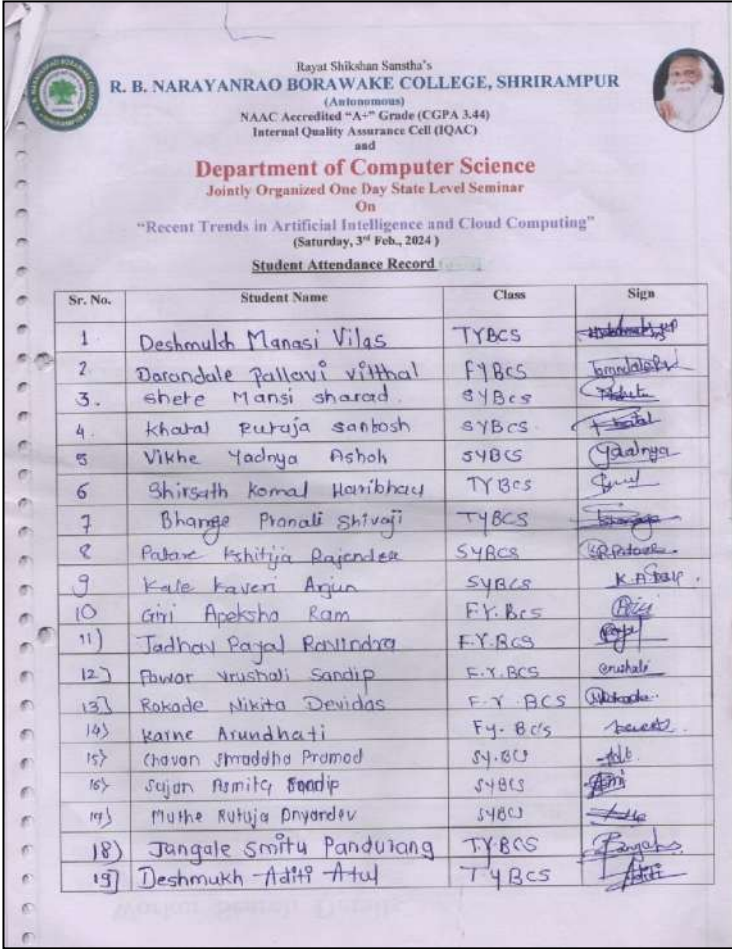 Rayat Shikshan Sanstha's
R. B. NARAYANRAO BORAWAKE COLLEGE, SHRIRAMPUR
(Autonomous)
NAAC Accredited "A+" Grade (CGPA 3.44)
Internal Quality Assurance Cell (IQAC)
and
Department of Computer Science
Jointly Organized One Day State Level Seminar
On
"Recent Trends in Artificial Intelligence and Cloud Computing"
(Saturday, 3rd Feb., 2024 )
Student Attendance Record
Sr. No. Student Name Class Sign
1 Deshmukh Manasi Vilas TYBCS
2. Darandale Pallavi vitthal FYBCS
3. Shete Mansi sharad. SYBCS
4. Kharal Rutuja Santosh SYBCS.
5 Vikhe Yadnya Ashok SYBCS Yadnya
6 Shirsath Komal Haribhau TYBCS
7 Bhange Pranali Shivaji TYBCS
8 Patare Kshitija Rajendra SYBCS
9 Kale Kaveri Arjun SYBCS
10 Giri Apeksha Ram F.Y.BCS
11) Jadhav Payal Ravindra F.Y.BCS
12) Pawar Vrushali Sandip F.Y.BCS vrushali
13] Rokade Nikita Devidas F.Y.BCS
14) Karne Arundhati Fy.BCS
15) Chavan Shraddha Pramod SY.BCS
16) Sajan Asmita Sandip SYBCS
17) Muthe Rutuja Dnyandev SYBCS
18) Jangale Smita Pandurang T.Y.BCS
19] Deshmukh Aditi Atul TYBCS Aditi